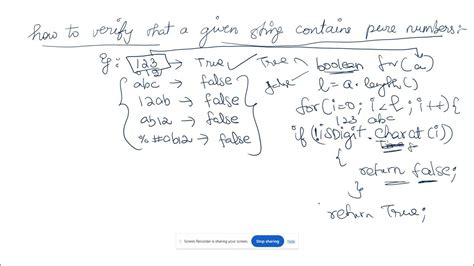 how to verify that a given string contains pure numbers:-
Eg: 123 → True ✓ True
012
false
abc → false
12ab → false
ab12 → false
%#ab12 → false
boolean fn(a)
l = a.length()
for(i=0; i<l; i++){
123 abc
if (!isDigit.charat(i))
{
return false;
}
return True;
Screen Recorder is sharing your screen. Stop sharing Hide